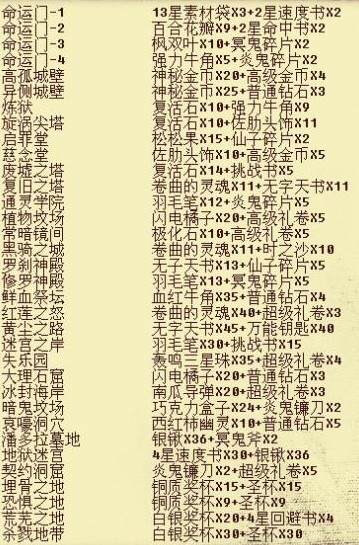 命运门-1 13星素材袋X3+2星速度书X2
命运门-2 百合花瓣X9+2星命中书X2
命运门-3 枫双叶X10+冥鬼碎片X2
命运门-4 强力牛角X5+炎鬼碎片X2
高孤城壁 神秘金币X20+高级金币X4
异侧城壁 神秘金币X25+普通钻石X3
炼狱 复活石X10+强力牛角X9
旋涡尖塔 复活石X10+佐助头饰X11
启罪堂 松松果X15+仙子碎片X2
慈念堂 佐助头饰X10+高级金币X5
废墟之塔 复活石X14+挑战书X5
复旧之塔 卷曲的灵魂X11+无字天书X11
通灵学院 羽毛笔X12+炎鬼碎片X5
植物坟场 闪电橘子X20+高级礼卷X5
常暗镜间 极化石X10+高级礼卷X5
黑骑之城 卷曲的灵魂X11+时之沙X10
罗刹神殿 无子天书X13+仙子碎片X5
修罗神殿 羽毛笔X13+冥鬼碎片X5
鲜血祭坛 血红牛角X35+普通钻石X4
红莲之怒 卷曲的灵魂X40+超级礼卷X3
黄尘之路 无字天书X45+万能钥匙X40
迷宫之岸 羽毛笔X30+挑战书X15
失乐园 轰鸣三星珠X35+超级礼卷X4
大理石窟 闪电橘子X20+普通钻石X3
冰封海岸 南瓜导弹X20+超级礼卷X3
暗鬼坟场 巧克力盒子X24+炎鬼镰刀X2
哀嚎洞穴 西红柿幽灵X10+普通钻石X5
潘多拉墓地 银锹X36+冥鬼斧X2
地狱迷宫 4星速度书X30+银锹X36
契约洞窟 炎鬼镰刀X2+超级礼卷X5
埋骨之地 铜质奖杯X15+圣杯X15
恐惧之地 铜质奖杯X9+圣杯X9
荒芜之地 白银奖杯X20+4星回避书X4
杀戮地带 白银奖杯X30+圣杯X30